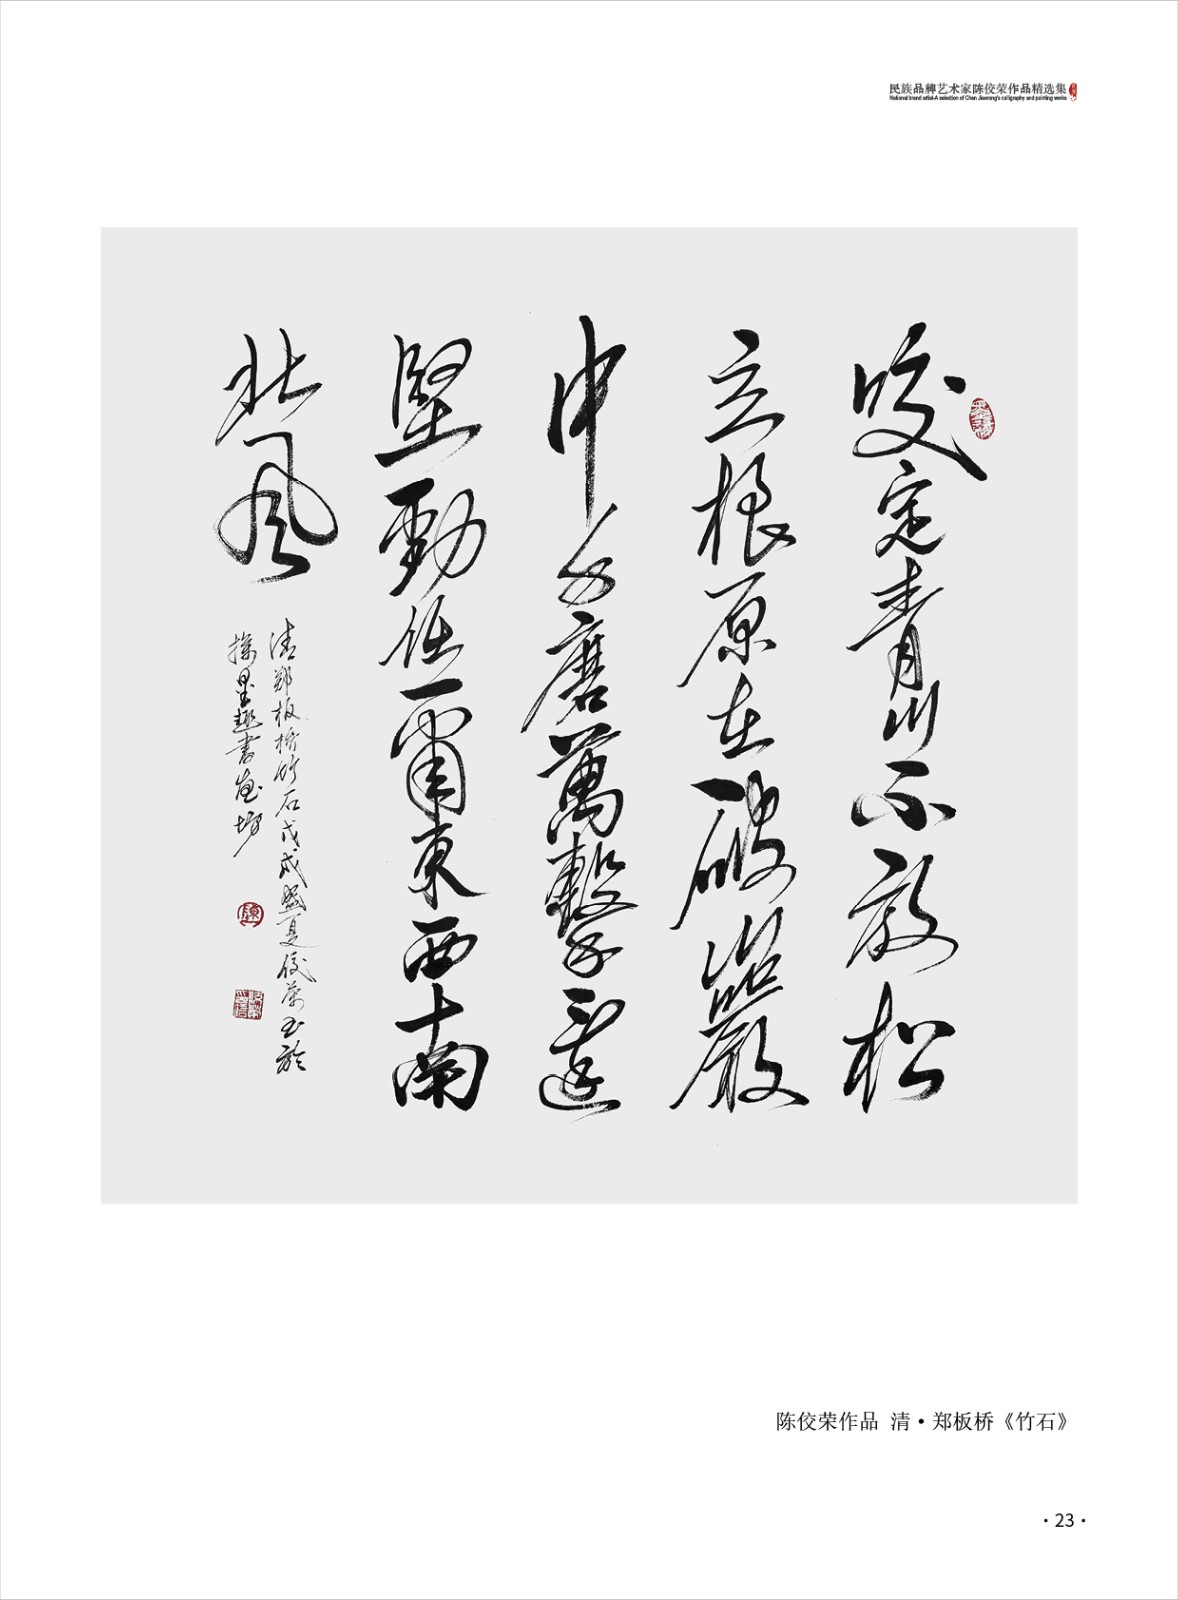 民族品牌艺术家陈佼荣作品精选集
National brand artist-A selection of Chen Jiaorong's calligraphy and painting works
咬定青山不放松
立根原在破巖
中千磨萬擊還
堅勁任爾東西南
北風
清郑板桥竹石戊戌盛夏佼荣书於
墨趣書画坊
陈佼荣作品 清·郑板桥《竹石》
·23·